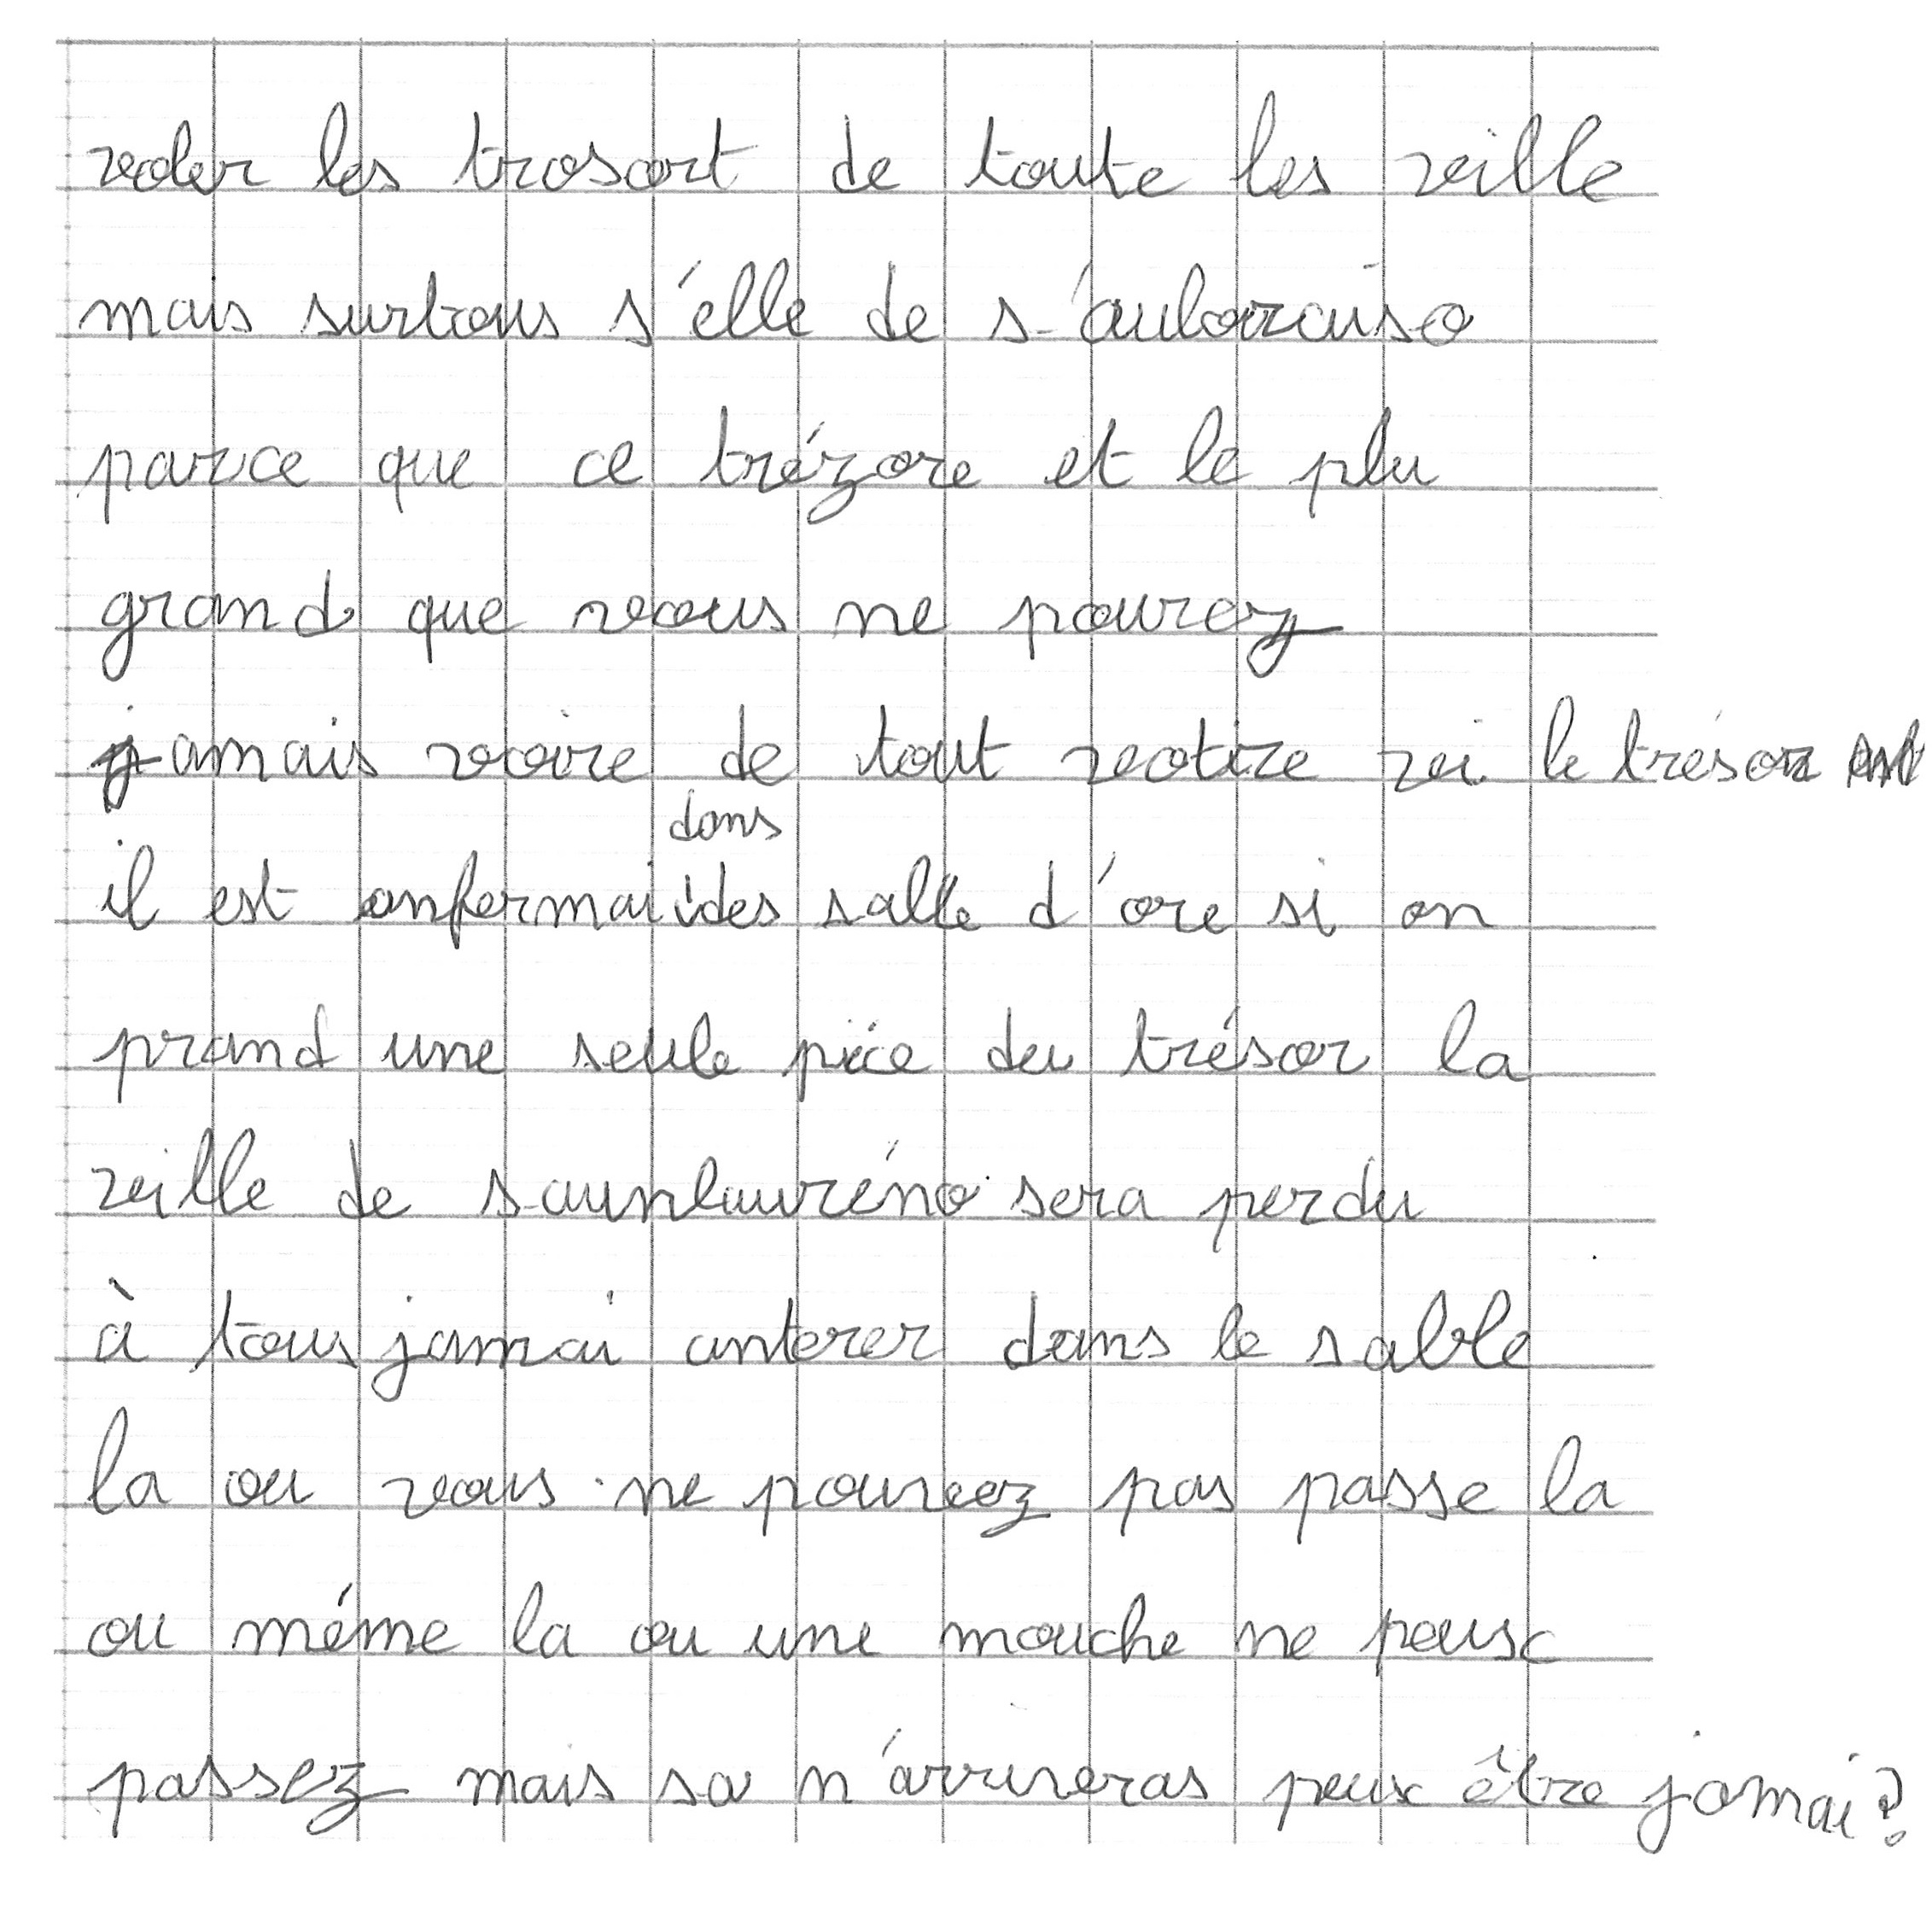 voler les trosort de toute les ville
mais surtous s'elle de
parce que ce trézore et le plu
grand que vous ne pourez
jamais voire de tout votire vi le trésor
dans
il est enfermai des salle d'ore si on
prand une seule pièce du trésor la
ville de saunlauréno sera perdu
à tous jamai anterer dans le sable
la ou vous ne pourez pas passe la
ou méme la ou une mouche ne peuse
passez mais sa n'arriveras peux être jamai?